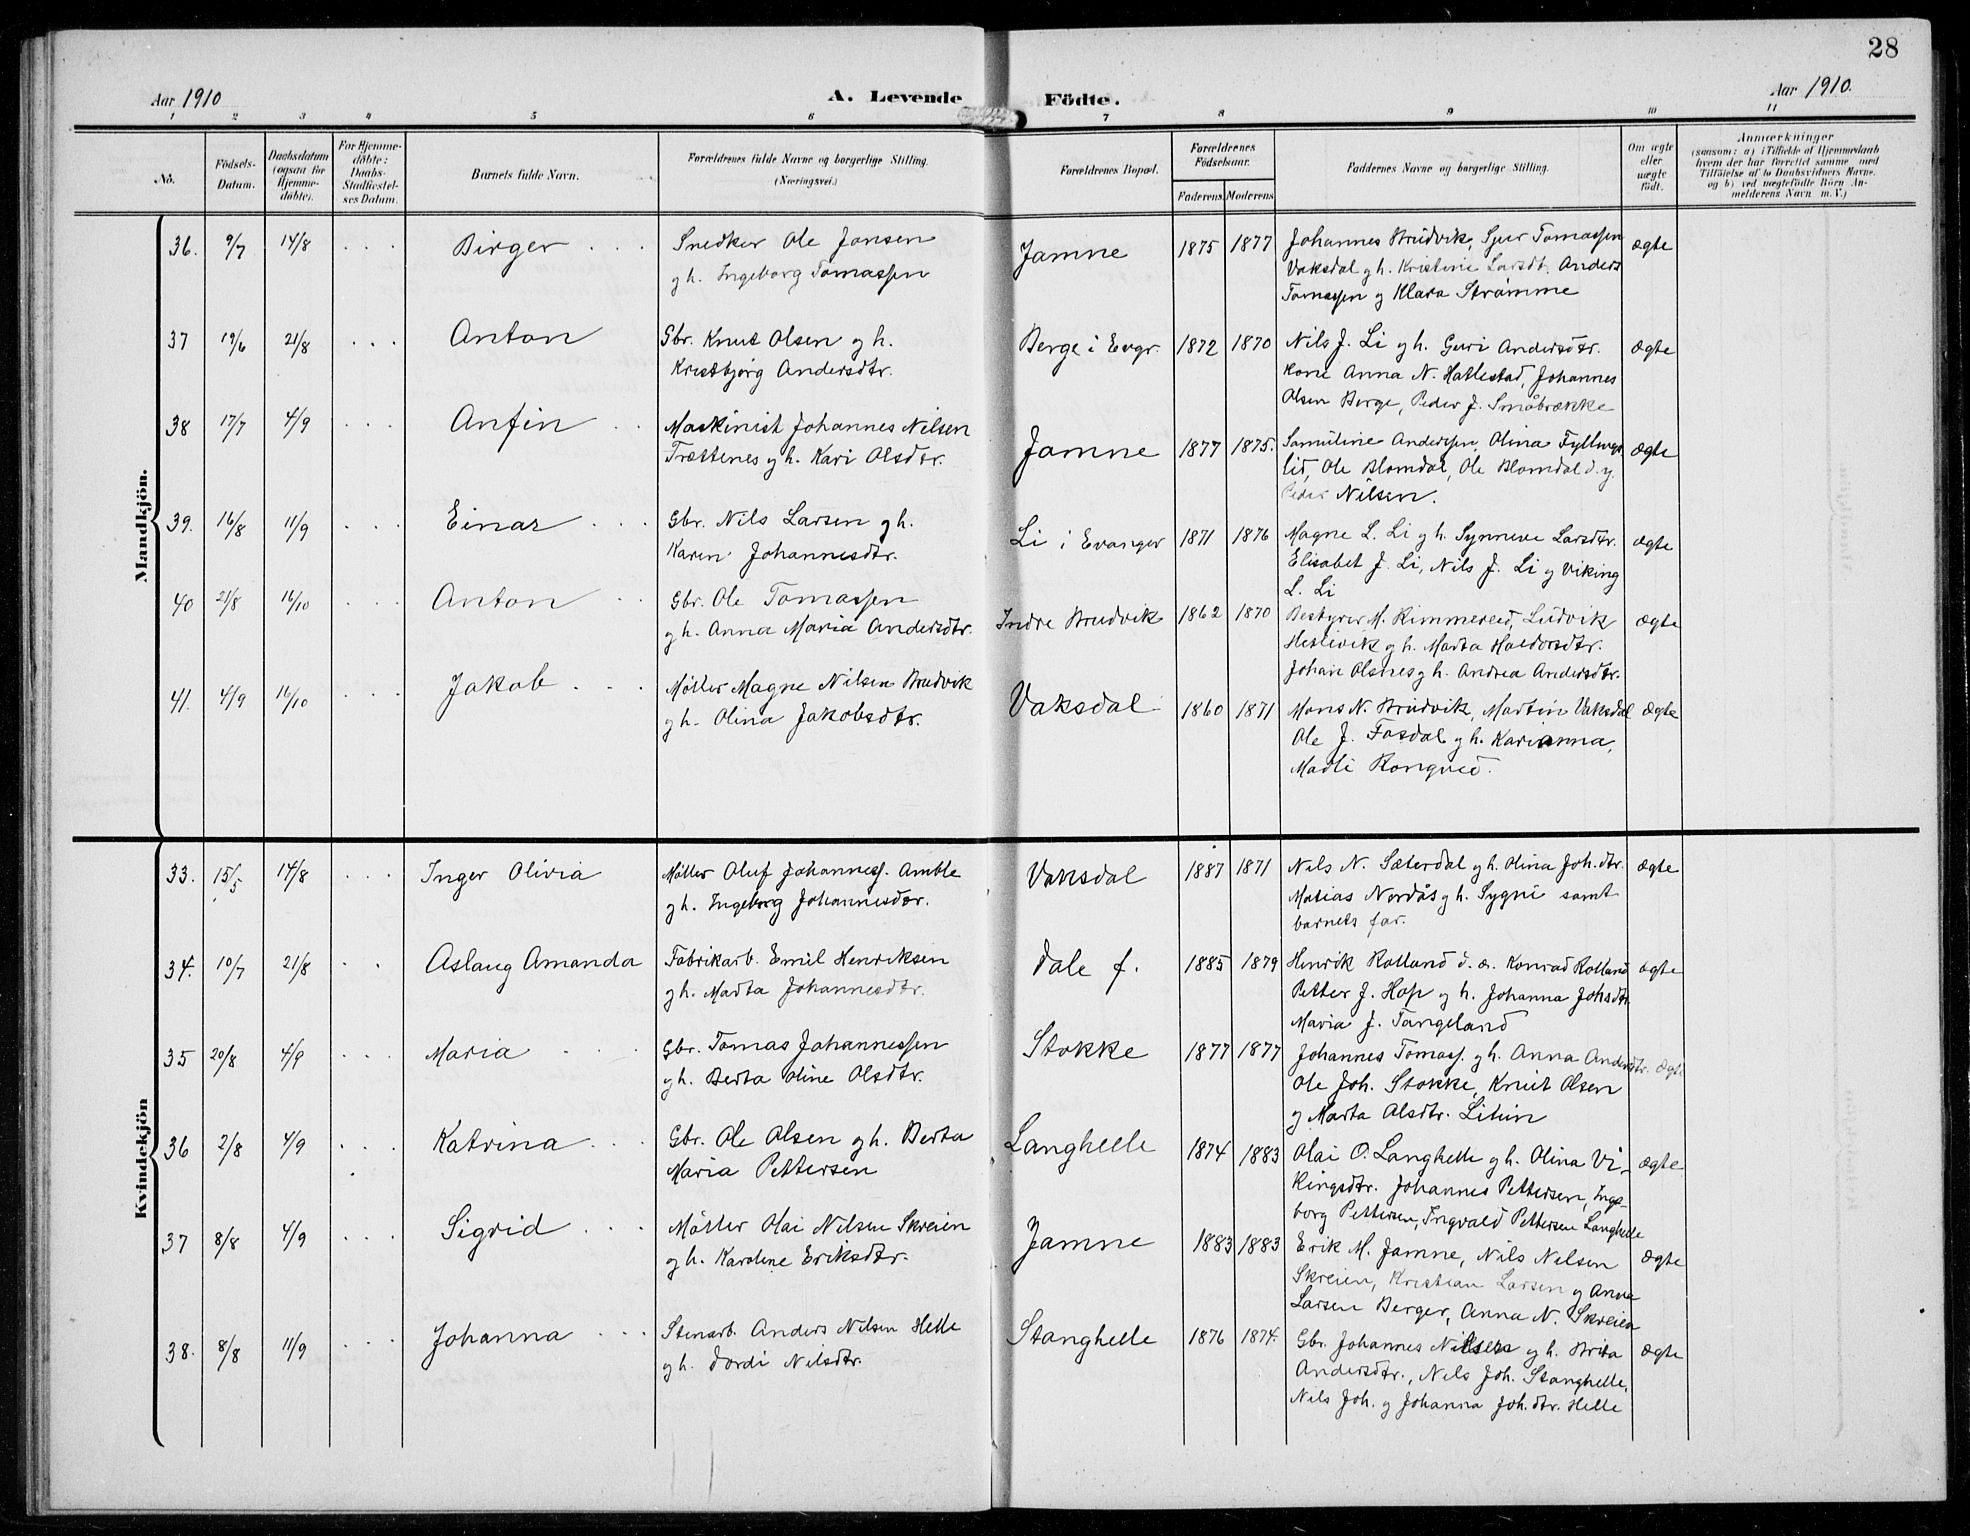 28
Aar 1910
A. Levende
Födte.
Aar 1910.
1 2 3 4 5 6 7 8 9 10 11
No.
Födsels-
Datum.
Daabsdatum
(ogsaa for
Hjemme-
döbte).
For Hjemme-
döbte:
Daabs-
Stadfæstel-
ses Datum.
Barnets fulde Navn.
Forældrenes fulde Navne og borgerlige Stilling.
(Næringsvei.)
Forældrenes Bopæl.
Forældrenes
Födselsaar.
Faderens. Moderens.
Faddernes Navne og borgerlige Stilling.
Om ægte
eller
uægte
födt.
Anmærkninger
(saasom: a) i Tilfælde af Hjemmedaab
hvem der har forrettet samme, med
Tilföielse af to Daabsvidners Navne,
og b) ved uægtefödte Börn An-
melderens Navn m. V.)
Mandkjön.
36. 9/7 14/8 . . . Birger . . .
Snedker Ole Jansen
g h. Ingeborg Tomassen
Jamne 1875 1877
Johannes Brudvik, Sjur Tomassen
Vaksdal g h. Kristine Larsdt. Anders
Tomassen g Klara Strømme
ægte
37 19/6 21/8 . . . Anton
Gbr. Knut Olsen g h.
Kristbjørg Andersdtr.
Berge i Evgr. 1872 1870
Nils J. Li g h. Guri Andersdtr.
Kone Anna N. Hatlestad, Johannes
Olsen Berge, Peder J. Småbrække
ægte
38 17/7 4/9 . . . Anfin . .
Maskinist Johannes Nilsen
Trættenes g h. Kari Olsdtr.
Jamne 1877 1875.
Samuline Anderssen, Olina
Ole Blomdal, Ole Blomdal d. y.
Peder Nilsen.
ægte
39. 16/8 11/9 . . . Einar . . .
Gbr. Nils Larsen g h.
Karen Johannesdtr.
Li i Evanger 1871 1876
Magne L. Li g h. Synneve Larsdtr.
Elisabet J. Li, Nils J. Li g Viking
L. Li
ægte
40 21/8 16/10 . . . Anton . .
Gbr. Ole Tomassen
g h. Anna Maria Andersdtr.
Indre Brudvik 1862 1870
Bestyrer M. Rimmereid, Ludvik
Hesjevik g h. Marta Haldorsdtr.
Johan Olsnes g h. Andrea Andersdtr.
ægte
41. 4/9 16/10 . . . Jakob . . .
Møller Magne Nilsen Brudvik
g h. Olina Jakobsdtr.
Vaksdal 1860 1871
Mons N. Brudvik, Martin Vaksdal
Ole J. Fosdal g h. Karianna,
Madli Rongved.
ægte
Kvindekjön
33. 15/5 14/8 . . . Inger Olivia
Møller Oluf Johanness. Amble
g h. Ingeborg Johannesdtr.
Vaksdal 1887 1871
Nils N. Sæterdal g h. Olina Joh.dtr.
Matias Nordås g h. Sygni samt
barnets far.
ægte
34. 10/7 21/8 . . Aslaug Amanda
Fabrikarb. Emil Henriksen
g h. Marta Johannesdtr.
Dale f. 1885 1879
Henrik Rolland d. æ. Konrad Rolland
Petter J. Hop g h. Johanna Johsdtr.
Maria J. Tangeland
ægte
35 20/8 4/9 . . . Maria . . .
Gbr. Tomas Johannessen
g h. Berta Oline Olsdtr.
Stokke 1877 1877
Johannes Tomass. g h. Anna Andersdtr.
Ole Joh. Stokke, Knut Olsen
g Marta Olsdtr. Litun
ægte
36 2/8 4/9 . . . Katrina . . .
Gbr. Ole Olsen g h. Berta
Maria Pettersen
Langhelle 1874 1883
Olai O. Langhelle g h. Olina Vi-
kingsdtr. Johannes Pettersen, Inge-
borg Pettersen, Ingvald Pettersen Langhelle
ægte
37 8/8 4/9 . . . Sigrid . . .
Møller Olai Nilsen Skreien
g h. Karoline Eriksdtr.
Jamne 1883 1883
Erik M. Jamne, Nils Nilsen
Skreien, Kristian Larsen g Anna
Larsen Berger, Anna N. Skreien
ægte
38. 8/8 11/9 . . Johanna . . .
Stenarb. Anders Nilsen Helle
g h. Dordi Nilsdtr.
Stanghelle 1876 1874.
Gbr. Johannes Nilsen g h. Brita
Andersdtr., Nils Joh. Stanghelle,
Nils Joh. g Johanna Joh.dtr. Helle
ægte